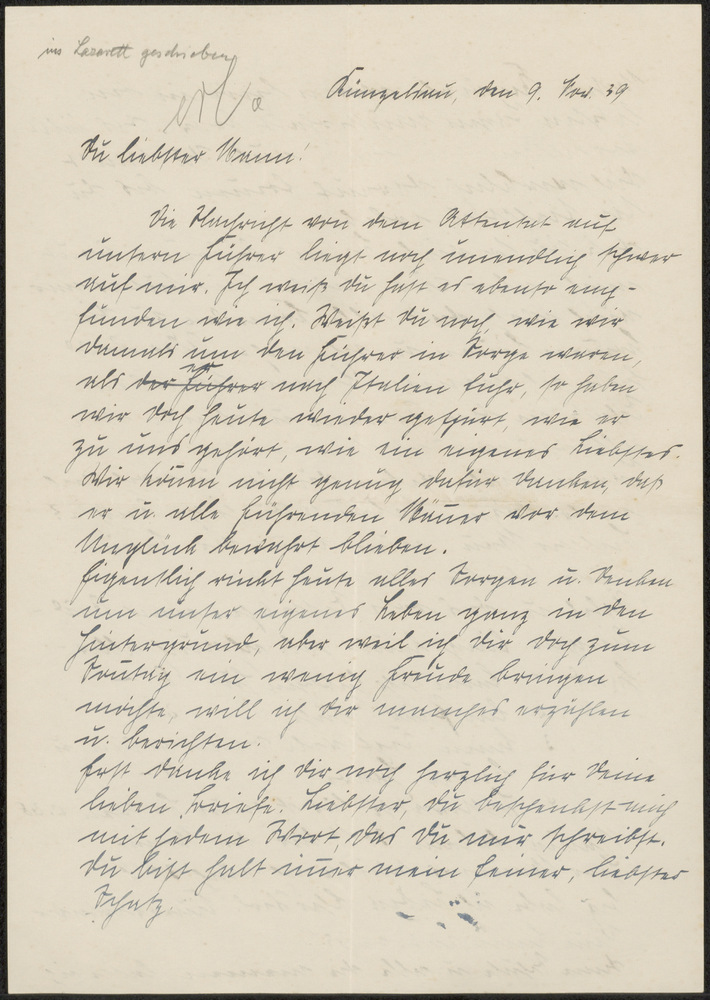 ins Lazarett geschrieben
Künzelsau, den 9. Nov. 39
Du liebster Mann!
Die Nachricht von dem Attentat auf
unsern Führer liegt noch unendlich schwer
auf mir. Ich weiß Du hast es ebenso emp-
funden wie ich. Weißt Du noch, wie wir
damals um den Führer in Sorge waren,
als der Führer er nach Italien fuhr, so haben
wir doch heute wieder gespürt, wie er
zu uns gehört, wie ein eigenes Liebstes.
Wir könen nicht genug dafür danken, daß
er u. alle führenden Mäner vor dem
Unglück bewahrt blieben.
Eigentlich rückt heute alles Sorgen u. Denken
um unser eigenes Leben ganz in den
Hintergrund, aber weil ich Dir doch zum
Sontag ein wenig Freude bringen
möchte, will ich Dir manches erzählen
u. berichten.
Erst danke ich Dir noch herzlich für Deine
lieben Briefe. Liebster, Du beschenkst mich
mit jedem Wort, das Du mir schreibst.
Du bist halt imer mein feiner, liebster
Schatz.